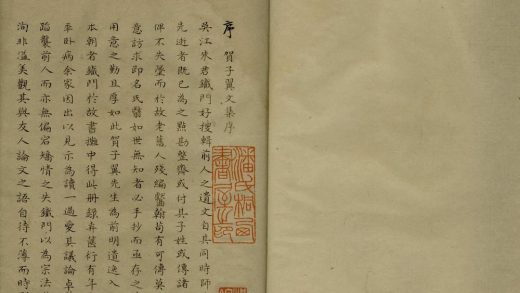 序
賀子翼文集序
吳江朱君鐵門好搜輯前人之遺文自其同時師
先逝者既已為之點勘整齊或付其子姓或傳諸
俾不失墜而於故老舊人殘編斷翰苟有可傳莫
意訪求即名氏翳如世無知者必手抄而亟存之
用意之勤且厚如此賀子翼先生為前明遺逸入
本朝者鐵門於故書攤中得此册録弆舊衍有年
卧病余家因出以見示為讀一過愛其議論卓
蹈襲前人而亦無偏宕矯情之失鐵門以為宗法
洵非溢美觀其與友人論文之語自待不薄而時